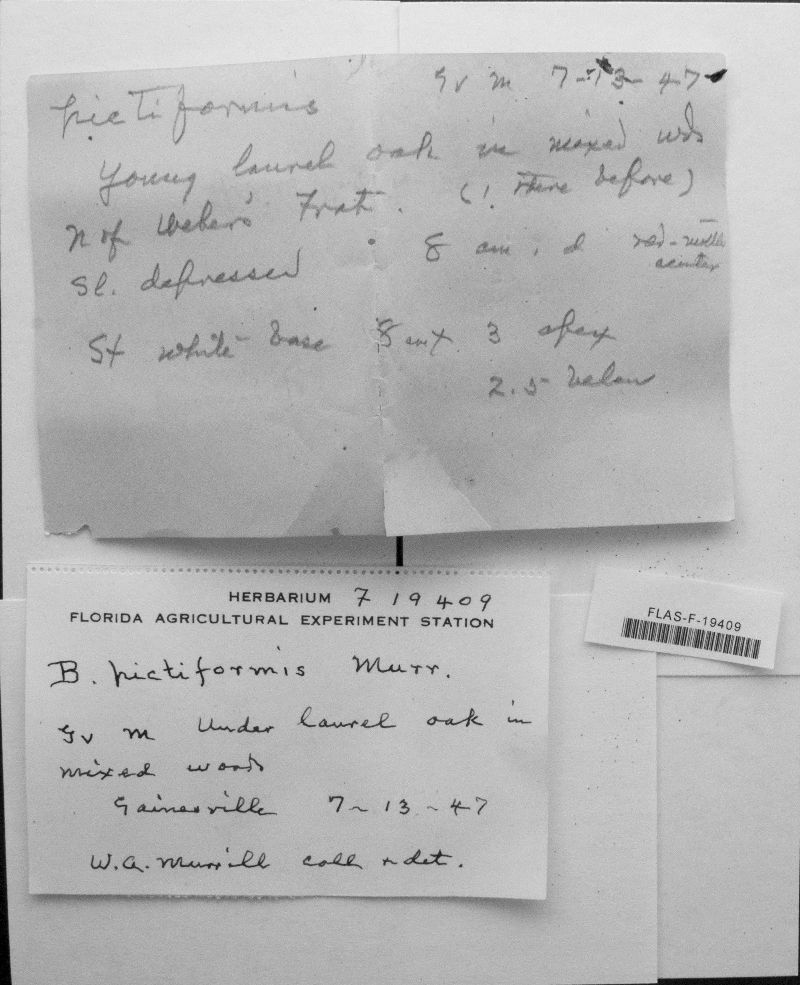 pictiformis Gv M 7-13-47
Young laurel oak in mixed wds
N of Weber's Frat. (! there before)
Sl. depressed 8 cm. d red-
St white base 8 cm x 3 apex
2.5 below
HERBARIUM F 19409
FLORIDA AGRICULTURAL EXPERIMENT STATION
B. pictiformis Murr.
Gv M Under laurel oak in
mixed woods
Gainesville 7-13-47
W.A. Murrill coll & det.
FLAS-F-19409